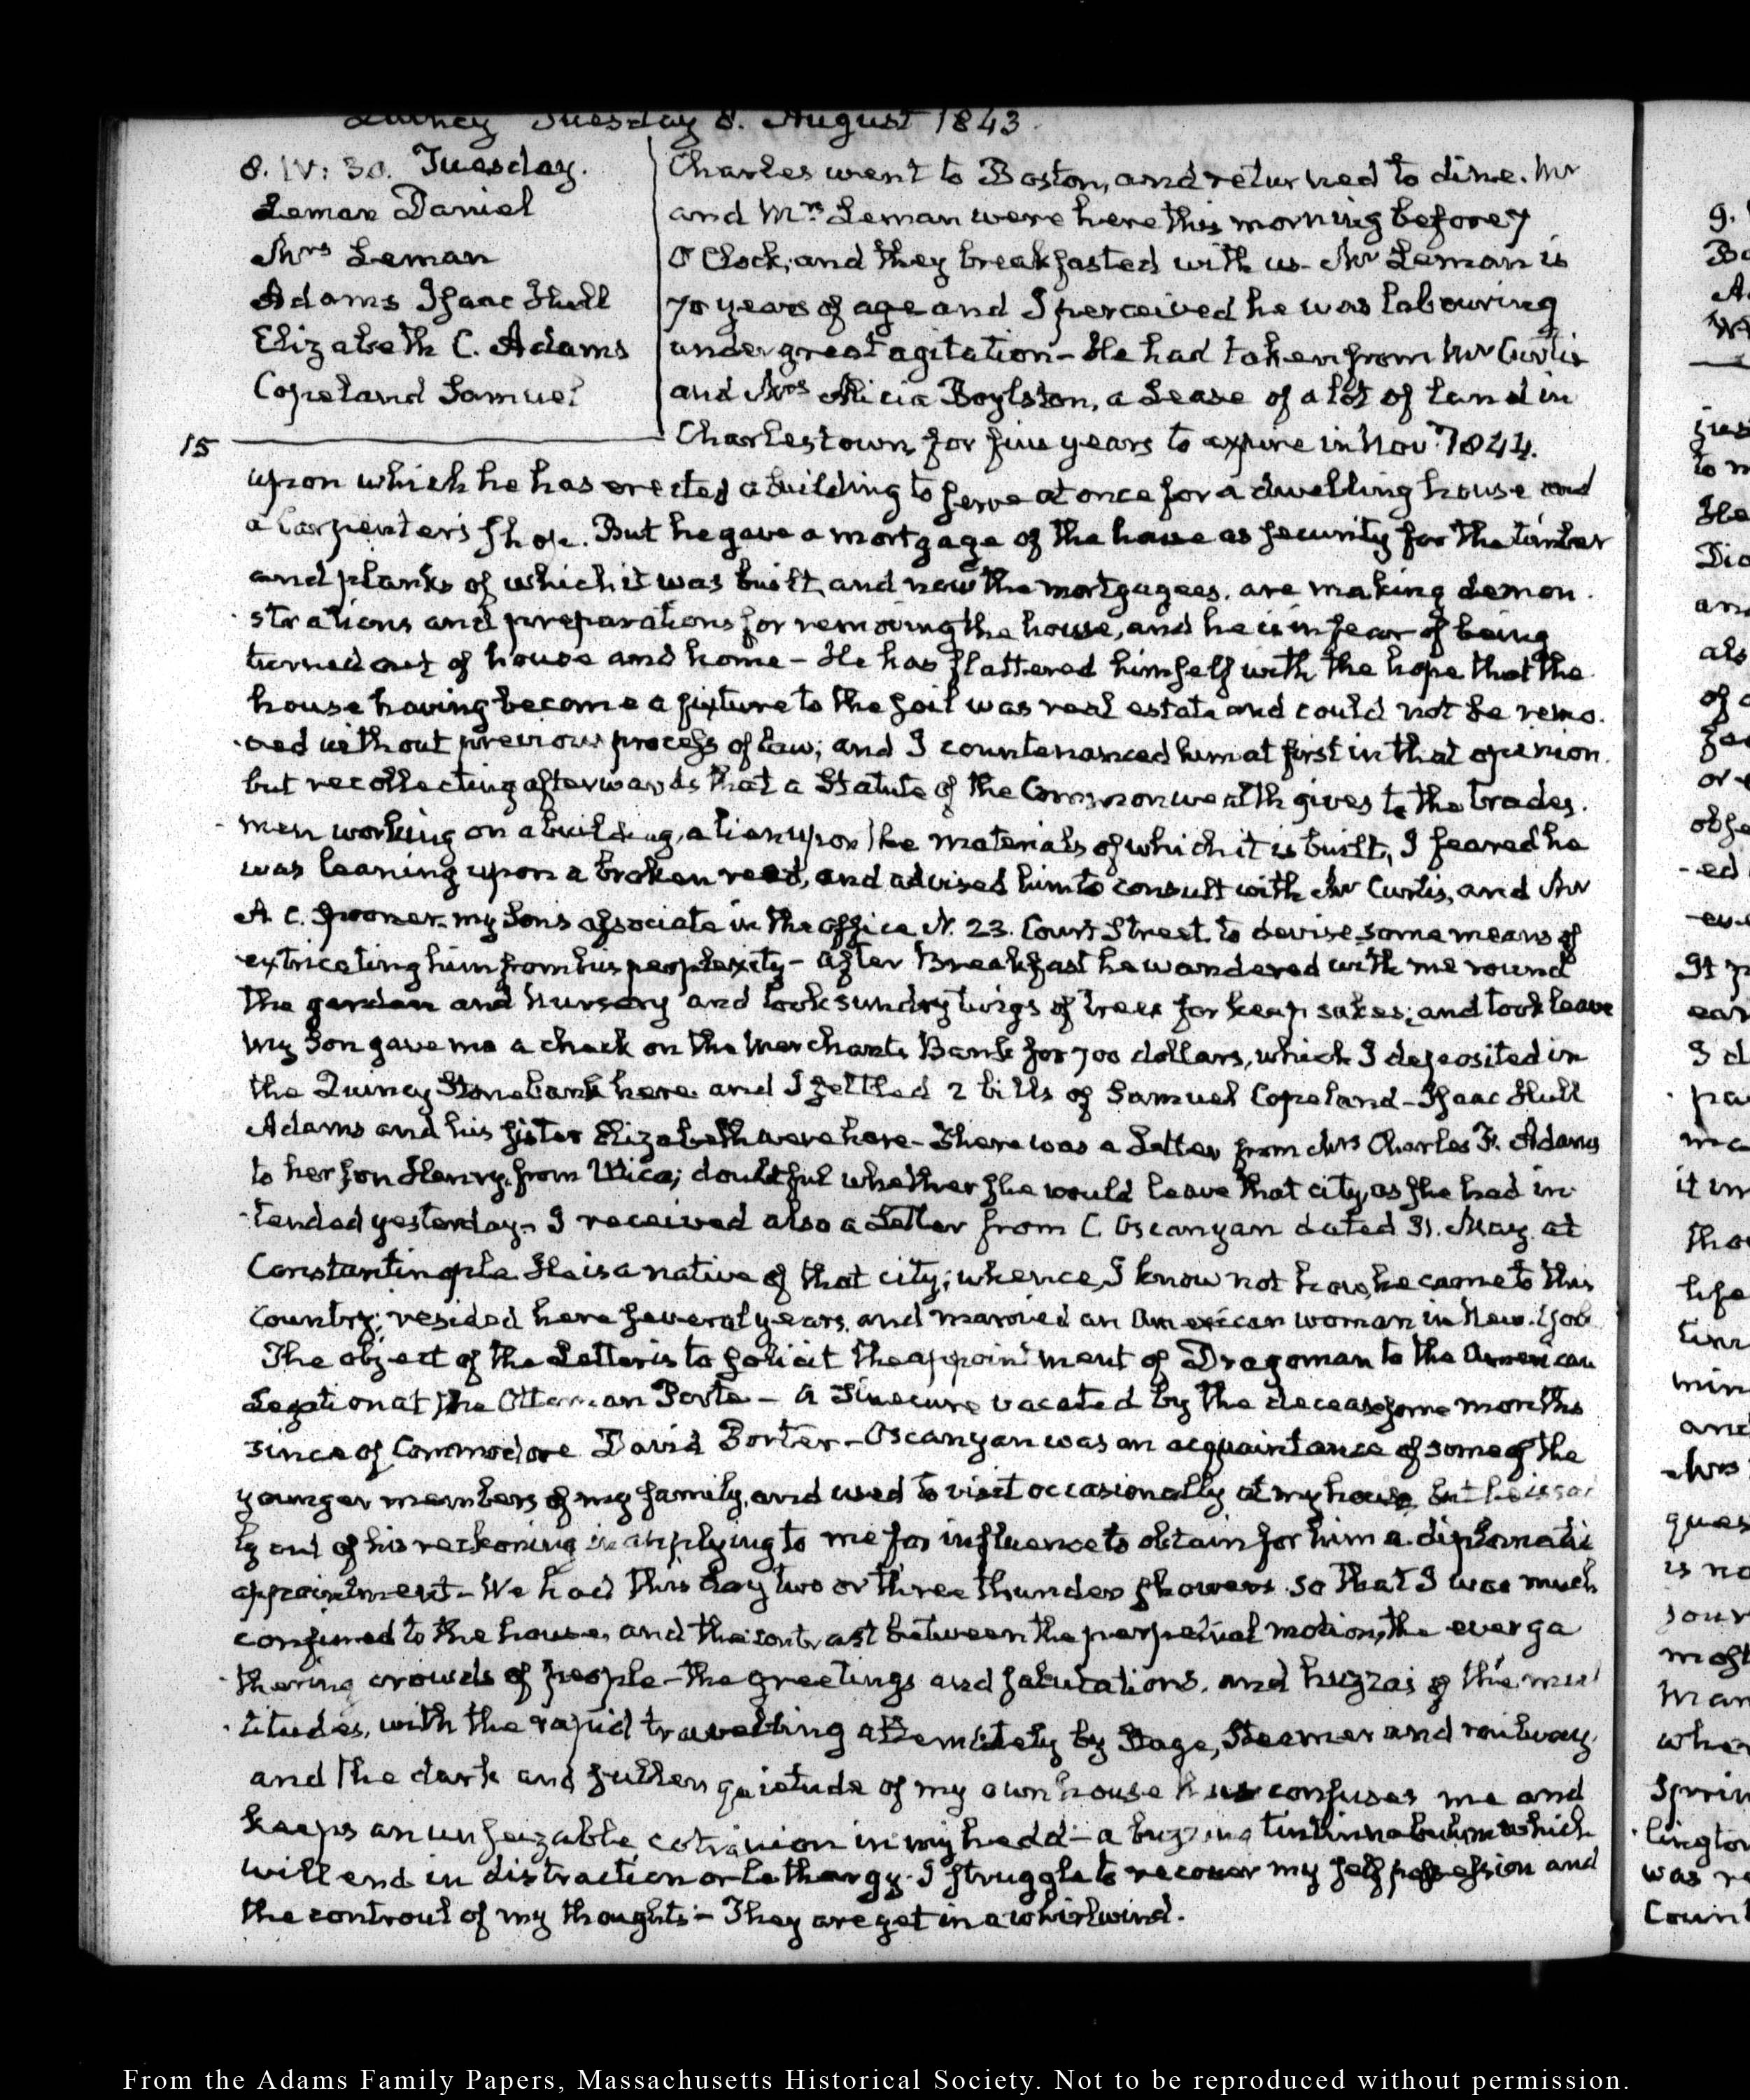 Quincy Tuesday 8. August 1843.
8. IV: 30. Tuesday.
Leman Daniel
Mrs Leman
Adams Isaac Hull
Elizabeth C. Adams
Copeland Samuel
15
Charles went to Boston, and returned to dine. Mr
and Mrs Leman were here this morning before 7
O'Clock, and they breakfasted with us. Mr Leman is
70 years of age and I perceived he was labouring
under great agitation - He had taken from Mr Curtis
and Mrs Alicia Boylston, a Lease of a lot of land in
Charlestown, for five years to expire in Nov. 1844.
upon which he has erected a building to serve at once for a dwelling house and
a Carpenter's shop. But he gave a mortgage of the house as security for the timber
and planks of which it was built, and now the mortgagees, are making demon-
strations and preparations for removing the house, and he is in fear of being
turned out of house and home - He has flattered himself with the hope that the
house having become a fixture to the soil was real estate and could not be remo-
ved without previous process of law; and I countenanced him at first in that opinion.
but recollecting afterwards that a Statute of the Commonwealth gives to the trades-
men working on a building, a lien upon the materials of which it is built, I feared he
was leaning upon a broken reed, and advised him to consult with Mr Curtis, and Mr
A. C. Spooner my Sons associate in the office N. 23. Court Street, to devise some means of
extricating him from his peoplexity - after Breakfast he wandered with me round
the garden and nursery and took sundry twigs of trees for keep sakes; and took leave
My Son gave me a check on the Merchants Bank for 700 dollars, which I deposited in
the Quincy Stone bank here. and I settled 2 bills of Samuel Copeland - Isaac Hull
Adams and his sister Elizabeth were here - There was a Letter from Mrs Charles F. Adams
to her son Henry, from Utica; doubtful whether she would leave that city, as she had in-
tended yesterday - I received also a Letter from C. Oscanyan dated 31. May. at
Constantinople. He is a native of that city; whence, I know not how, he came to this
Country; resided here several years, and married an American woman in New-York
The object of the Letter is to solicit the appointment of Dragoman to the American
Legation at the Ottoman Porte - a Sinecure vacated by the decease some months
since of Commodore David Porter - Oscanyan was an acquaintance of some of the
younger members of my family, and used to visit occasionally at my house but he is sad
ly out of his reckoning in applying to me for influence to obtain for him a diplomatic
appointment - We had this day two or three thunder showers. so that I was much
confined to the house, and the contrast between the perpetual motion, the ever ga-
thering crowds of people - the greetings and salutations, and huzzas of the mul-
titudes, with the rapid travelling alternately by Stage, Steamer and railway,
and the dark and sullen quietude of my own house confuses me and
keeps an unseizable commotion in my head - a buzzing tintinnabulum which
will end in distraction or lethargy. I struggle to recover my self possession and
the controul of my thoughts - They are yet in a whirlwind.
From the Adams Family Papers, Massachusetts Historical Society. Not to be reproduced without permission.